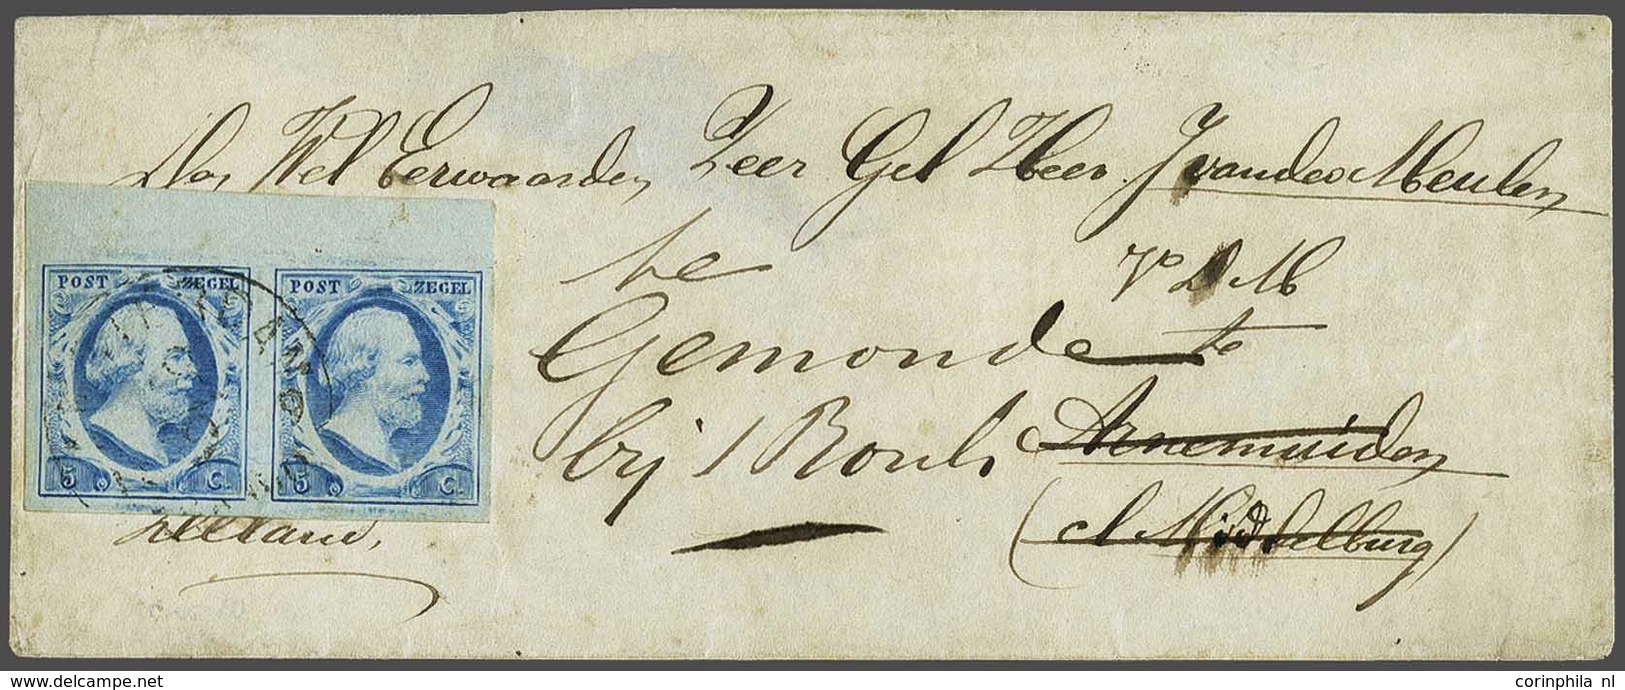 Den Wel Eerwaarden Zeer Gel Heer J van der Meulen
te
Gemonde
bij
VDM
te
Arnemuiden
(Middelburg)
Zeeland,
POST ZEGEL
5 C.
POST ZEGEL
5 C.
delcampe.net
corinphila nl